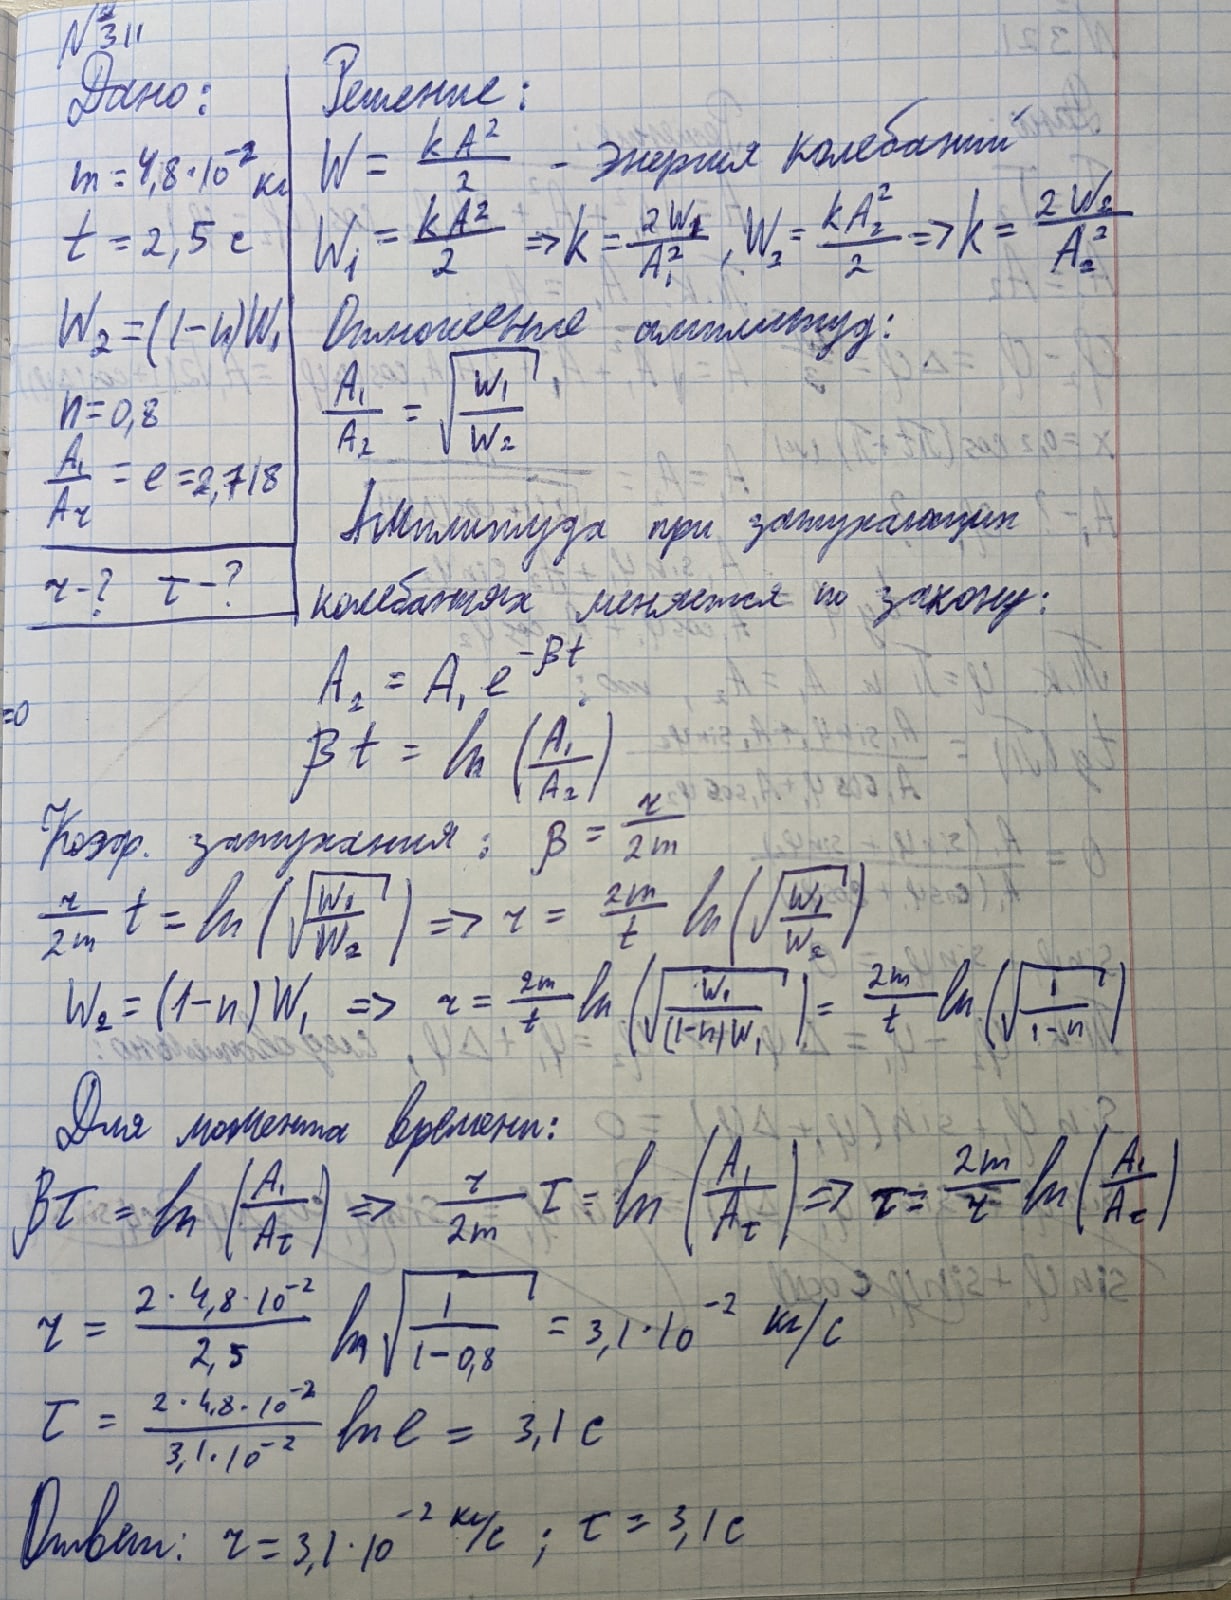 № 311
Дано:
m = 4,8·10⁻² кг
t = 2,5 с
W₂ = (1-n)W₁
n = 0,8
A₁/Aτ = e = 2,718
r - ? τ - ?
Решение:
W = kA²/2 - Энергия колебаний
W₁ = kA²/2 => k = 2W₁/A₁², W₂ = kA₂²/2 => k = 2W₂/A₂²
Отношение амплитуд:
A₁/A₂ = √(W₁/W₂)
Амплитуда при затухающих
колебаниях меняется по закону:
A₂ = A₁e^(-βt)
βt = ln(A₁/A₂)
=0
Коэф. затухания: β = r/2m
r/2m t = ln(√(W₁/W₂)) => r = 2m/t ln(√(W₁/W₂))
W₂ = (1-n)W₁ => r = 2m/t ln(√(W₁/(1-n)W₁)) = 2m/t ln(√(1/1-n))
Для момента времени:
βτ = ln(A₁/Aτ) => r/2m τ = ln(A₁/Aτ) => τ = 2m/r ln(A₁/Aτ)
r = 2·4,8·10⁻²/2,5 ln√(1/1-0,8) = 3,1·10⁻² кг/с
τ = 2·4,8·10⁻²/3,1·10⁻² ln e = 3,1 с
Ответ: r = 3,1·10⁻² кг/с; τ = 3,1 с